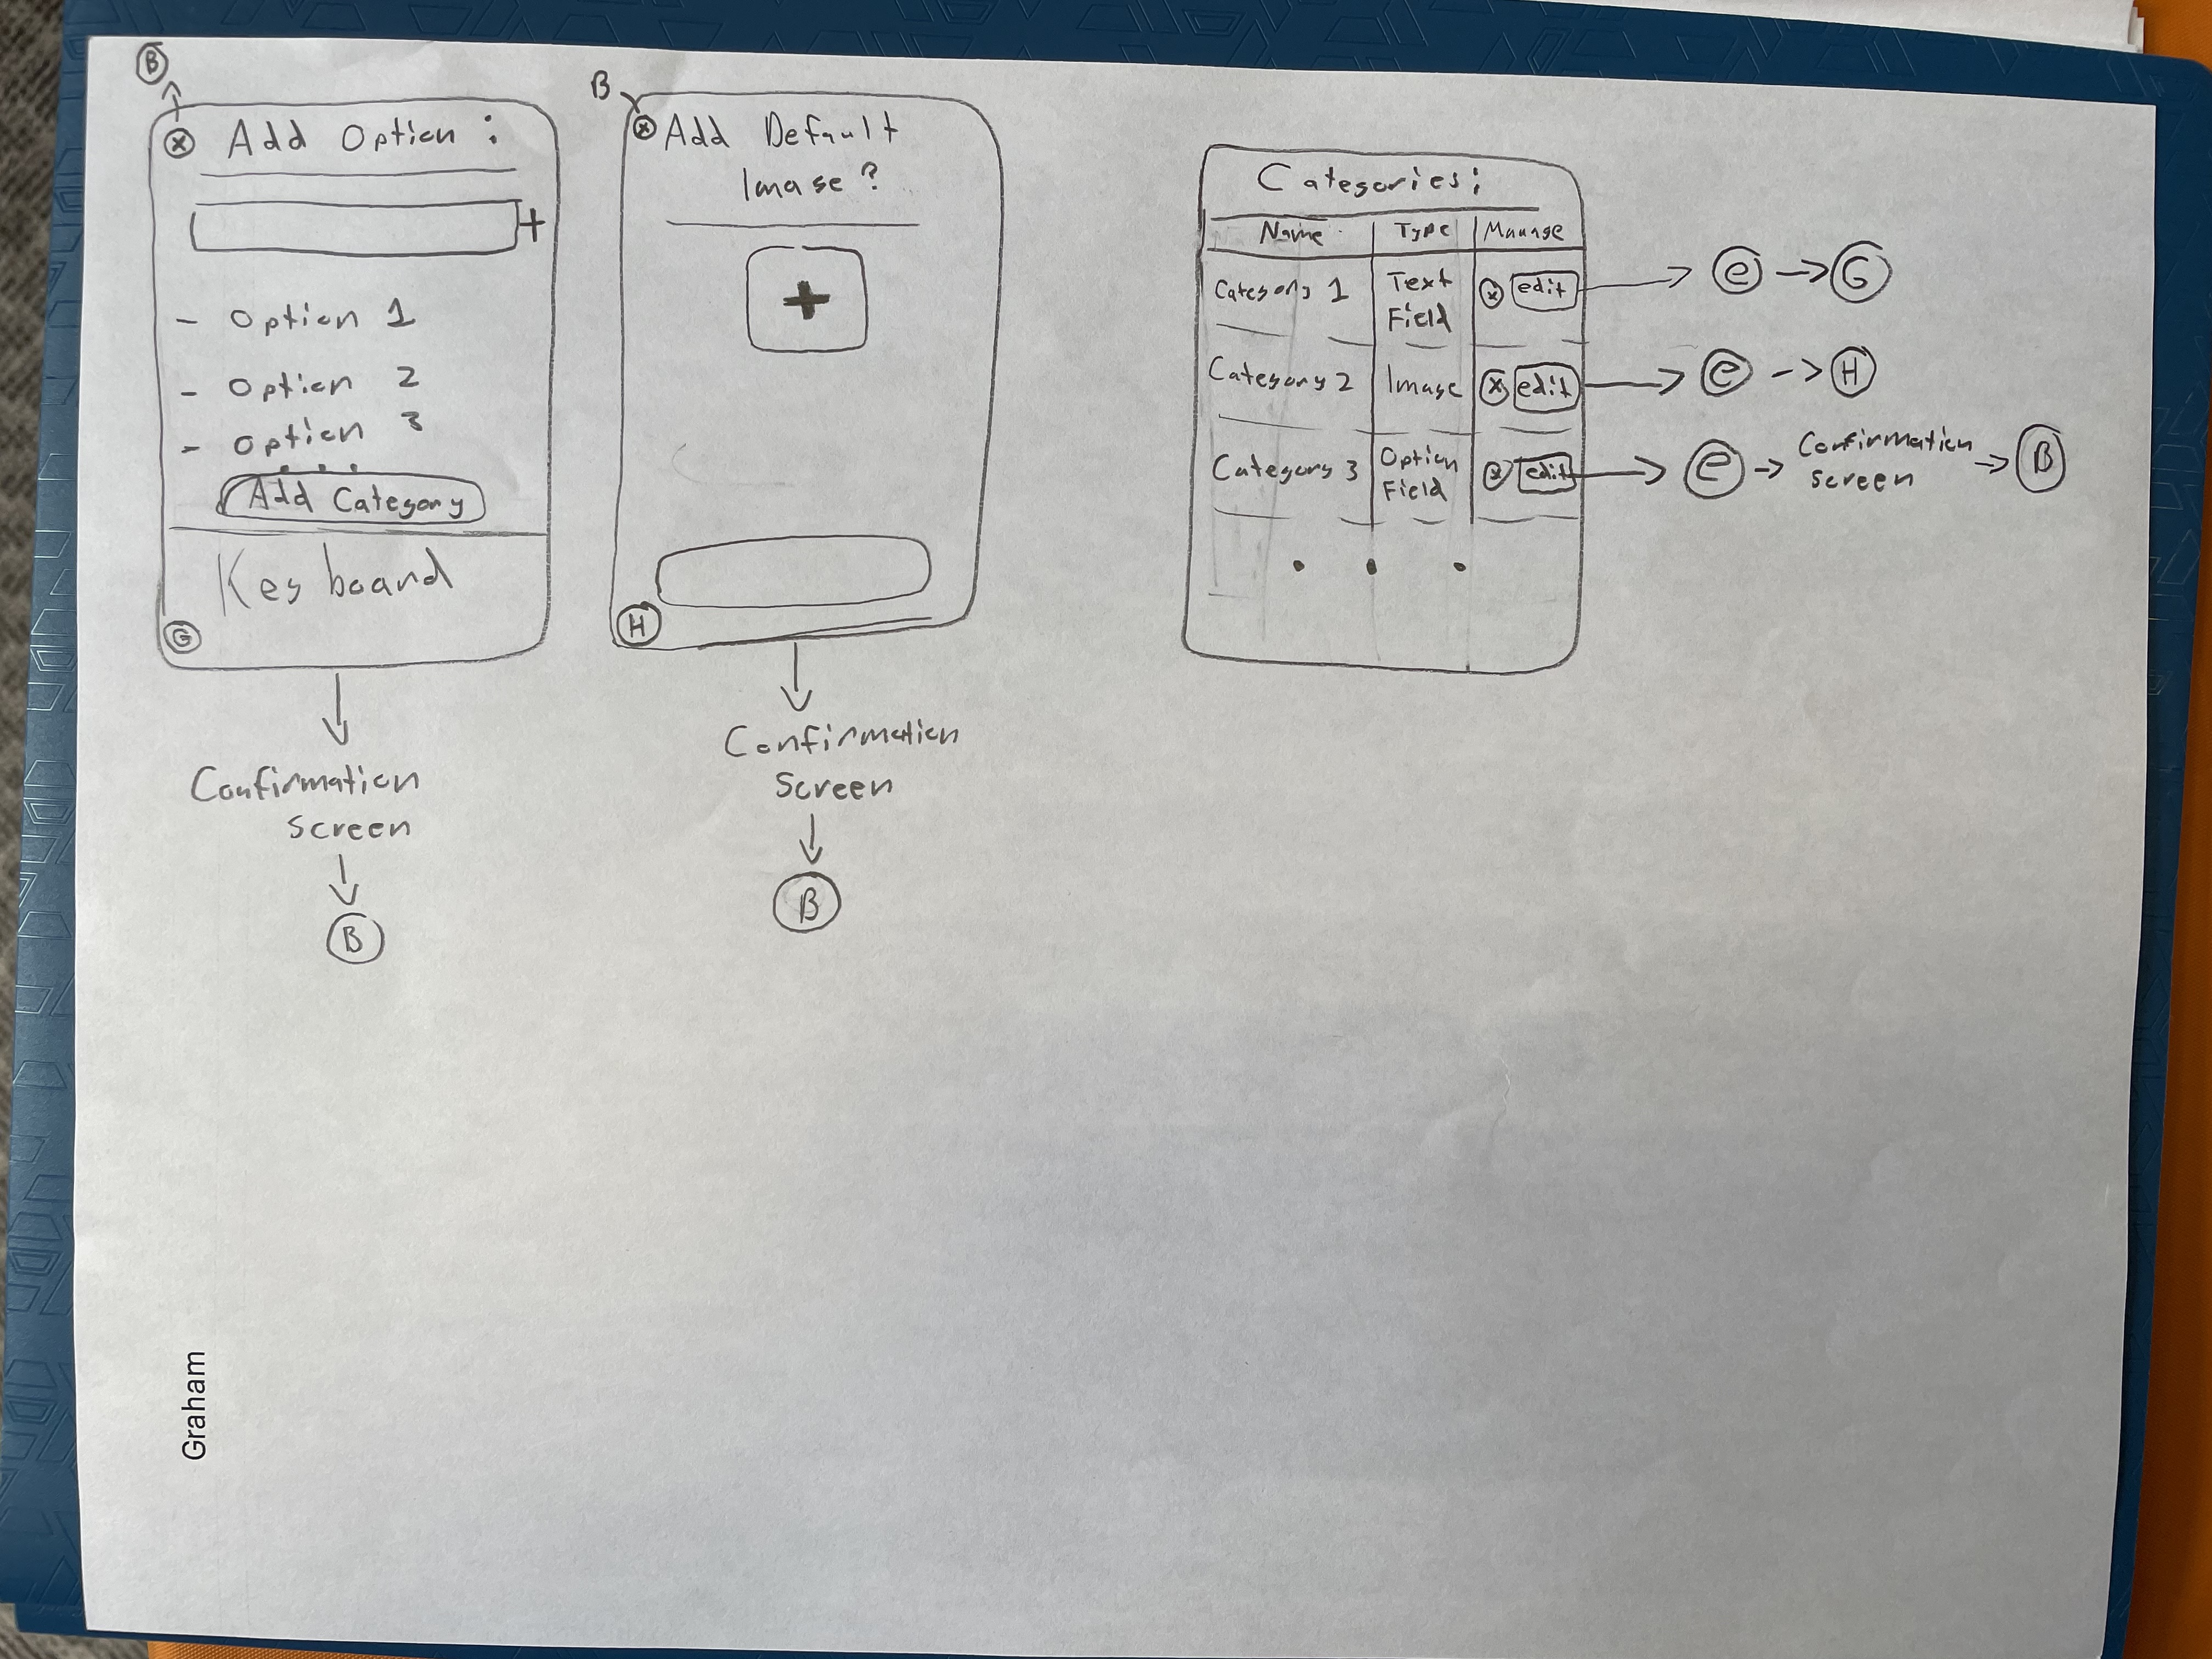 B
x Add Option :
+
- Option 1
- Option 2
- Option 3
...
Add Category
Keyboard
G
Confirmation
Screen
B
B
x Add Default
Image?
+
H
Confirmation
Screen
B
Categories:
Name Type Manage
Category 1 Text Field x edit → e → G
Category 2 Image x edit → e → H
Category 3 Option Field x edit → e → Confirmation screen → B
. . .
Graham